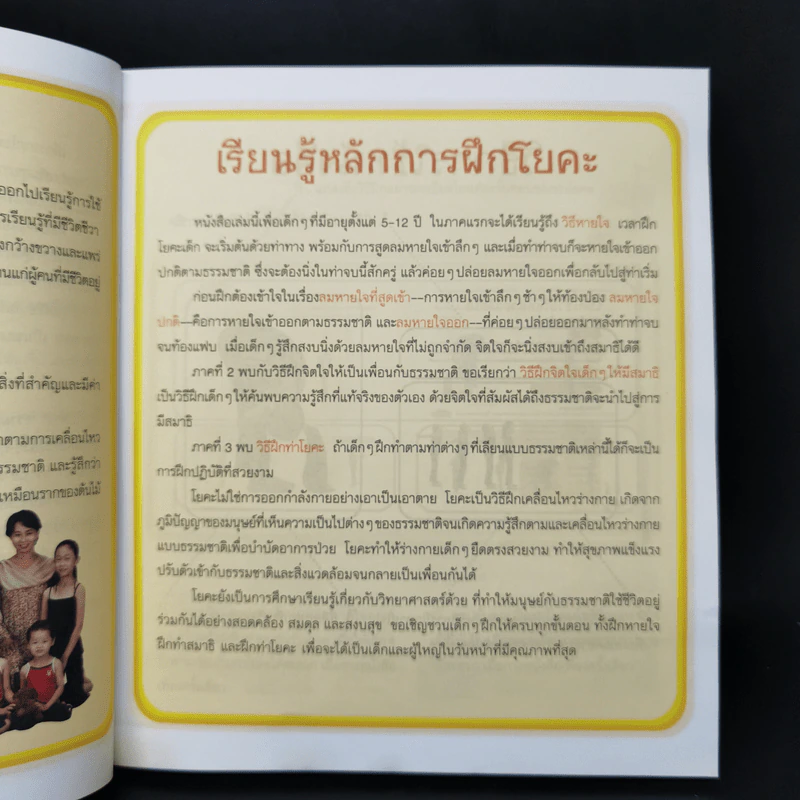 ออกไปเรียนรู้การใช้
การเรียนรู้ที่มีชีวิตชีวา
กว้างขวางและแพร่
แก่ผู้คนที่มีชีวิตอยู่
สิ่งที่สำคัญและมีค่า
ตามการเคลื่อนไหว
ธรรมชาติ และรู้สึกว่า
เหมือนรากของต้นไม้
เรียนรู้หลักการฝึกโยคะ
หนังสือเล่มนี้เพื่อเด็กๆที่มีอายุตั้งแต่ 5-12 ปี ในภาคแรกจะได้เรียนรู้ถึง วิธีหายใจ เวลาฝึก
โยคะเด็ก จะเริ่มต้นด้วยท่าทาง พร้อมกับการสูดลมหายใจเข้าลึกๆ และเมื่อทำท่าจบก็จะหายใจเข้าออก
ปกติตามธรรมชาติ ซึ่งจะต้องนิ่งในท่าจบนี้สักครู่ แล้วค่อยๆปล่อยลมหายใจออกเพื่อกลับไปสู่ท่าเริ่ม
ก่อนฝึกต้องเข้าใจในเรื่องลมหายใจที่สูดเข้า--การหายใจเข้าลึกๆช้าๆให้ท้องป่อง ลมหายใจ
ปกติ--คือการหายใจเข้าออกตามธรรมชาติ และลมหายใจออก--ที่ค่อยๆปล่อยออกมาหลังทำท่าจบ
จนท้องแฟบ เมื่อเด็กๆรู้สึกสงบนิ่งด้วยลมหายใจที่ไม่ถูกจำกัด จิตใจก็จะนิ่งสงบเข้าถึงสมาธิได้ดี
ภาคที่ 2 พบกับวิธีฝึกจิตใจให้เป็นเพื่อนกับธรรมชาติ ขอเรียกว่า วิธีฝึกจิตใจเด็กๆให้มีสมาธิ
เป็นวิธีฝึกเด็กๆให้ค้นพบความรู้สึกที่แท้จริงของตัวเอง ด้วยจิตใจที่สัมผัสได้ถึงธรรมชาติจะนำไปสู่การ
มีสมาธิ
ภาคที่ 3 พบ วิธีฝึกท่าโยคะ ถ้าเด็กๆฝึกทำตามท่าต่างๆที่เลียนแบบธรรมชาติเหล่านี้ได้ก็จะเป็น
การฝึกปฏิบัติที่สวยงาม
โยคะไม่ใช่การออกกำลังกายอย่างเอาเป็นเอาตาย โยคะเป็นวิธีฝึกเคลื่อนไหวร่างกาย เกิดจาก
ภูมิปัญญาของมนุษย์ที่เห็นความเป็นไปต่างๆของธรรมชาติจนเกิดความรู้สึกตามและเคลื่อนไหวร่างกาย
แบบธรรมชาติเพื่อบำบัดอาการป่วย โยคะทำให้ร่างกายเด็กๆยืดตรงสวยงาม ทำให้สุขภาพแข็งแรง
ปรับตัวเข้ากับธรรมชาติและสิ่งแวดล้อมจนกลายเป็นเพื่อนกันได้
โยคะยังเป็นการศึกษาเรียนรู้เกี่ยวกับวิทยาศาสตร์ด้วย ที่ทำให้มนุษย์กับธรรมชาติใช้ชีวิตอยู่
ร่วมกันได้อย่างสอดคล้อง สมดุล และสงบสุข ขอเชิญชวนเด็กๆฝึกให้ครบทุกขั้นตอน ทั้งฝึกหายใจ
ฝึกทำสมาธิ และฝึกท่าโยคะ เพื่อจะได้เป็นเด็กและผู้ใหญ่ในวันหน้าที่มีคุณภาพที่สุด